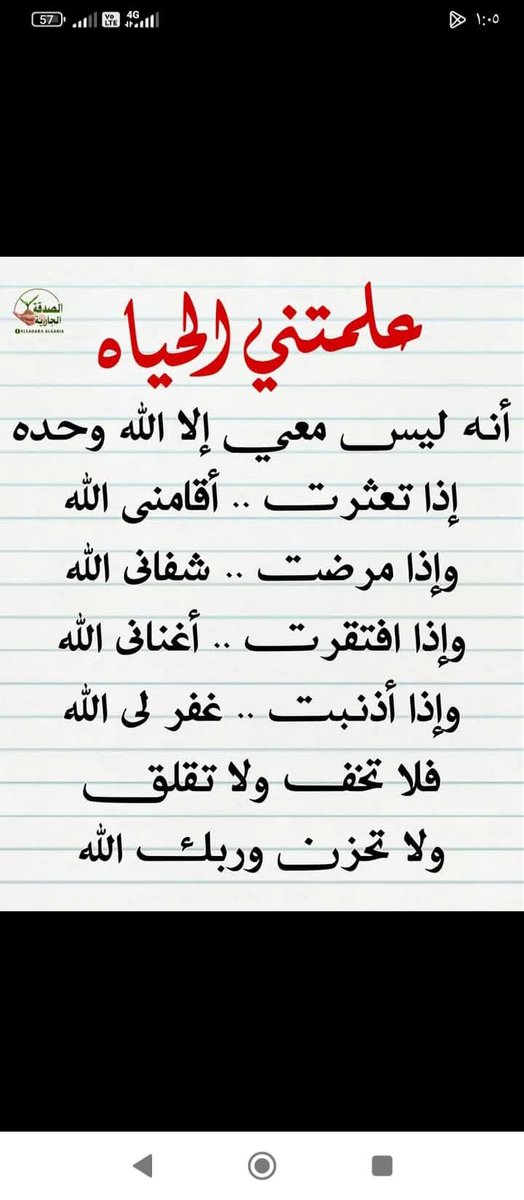 57
Vo
LTE
4G
١:٠٥
الصدقة
الجارية
علمتني الحياه
أنه ليس معي إلا الله وحده
إذا تعثرت .. أقامنى الله
وإذا مرضت .. شفانى الله
وإذا افتقرت .. أغنانى الله
وإذا أذنبت .. غفر لى الله
فلا تخف ولا تقلق
ولا تحزن وربك الله